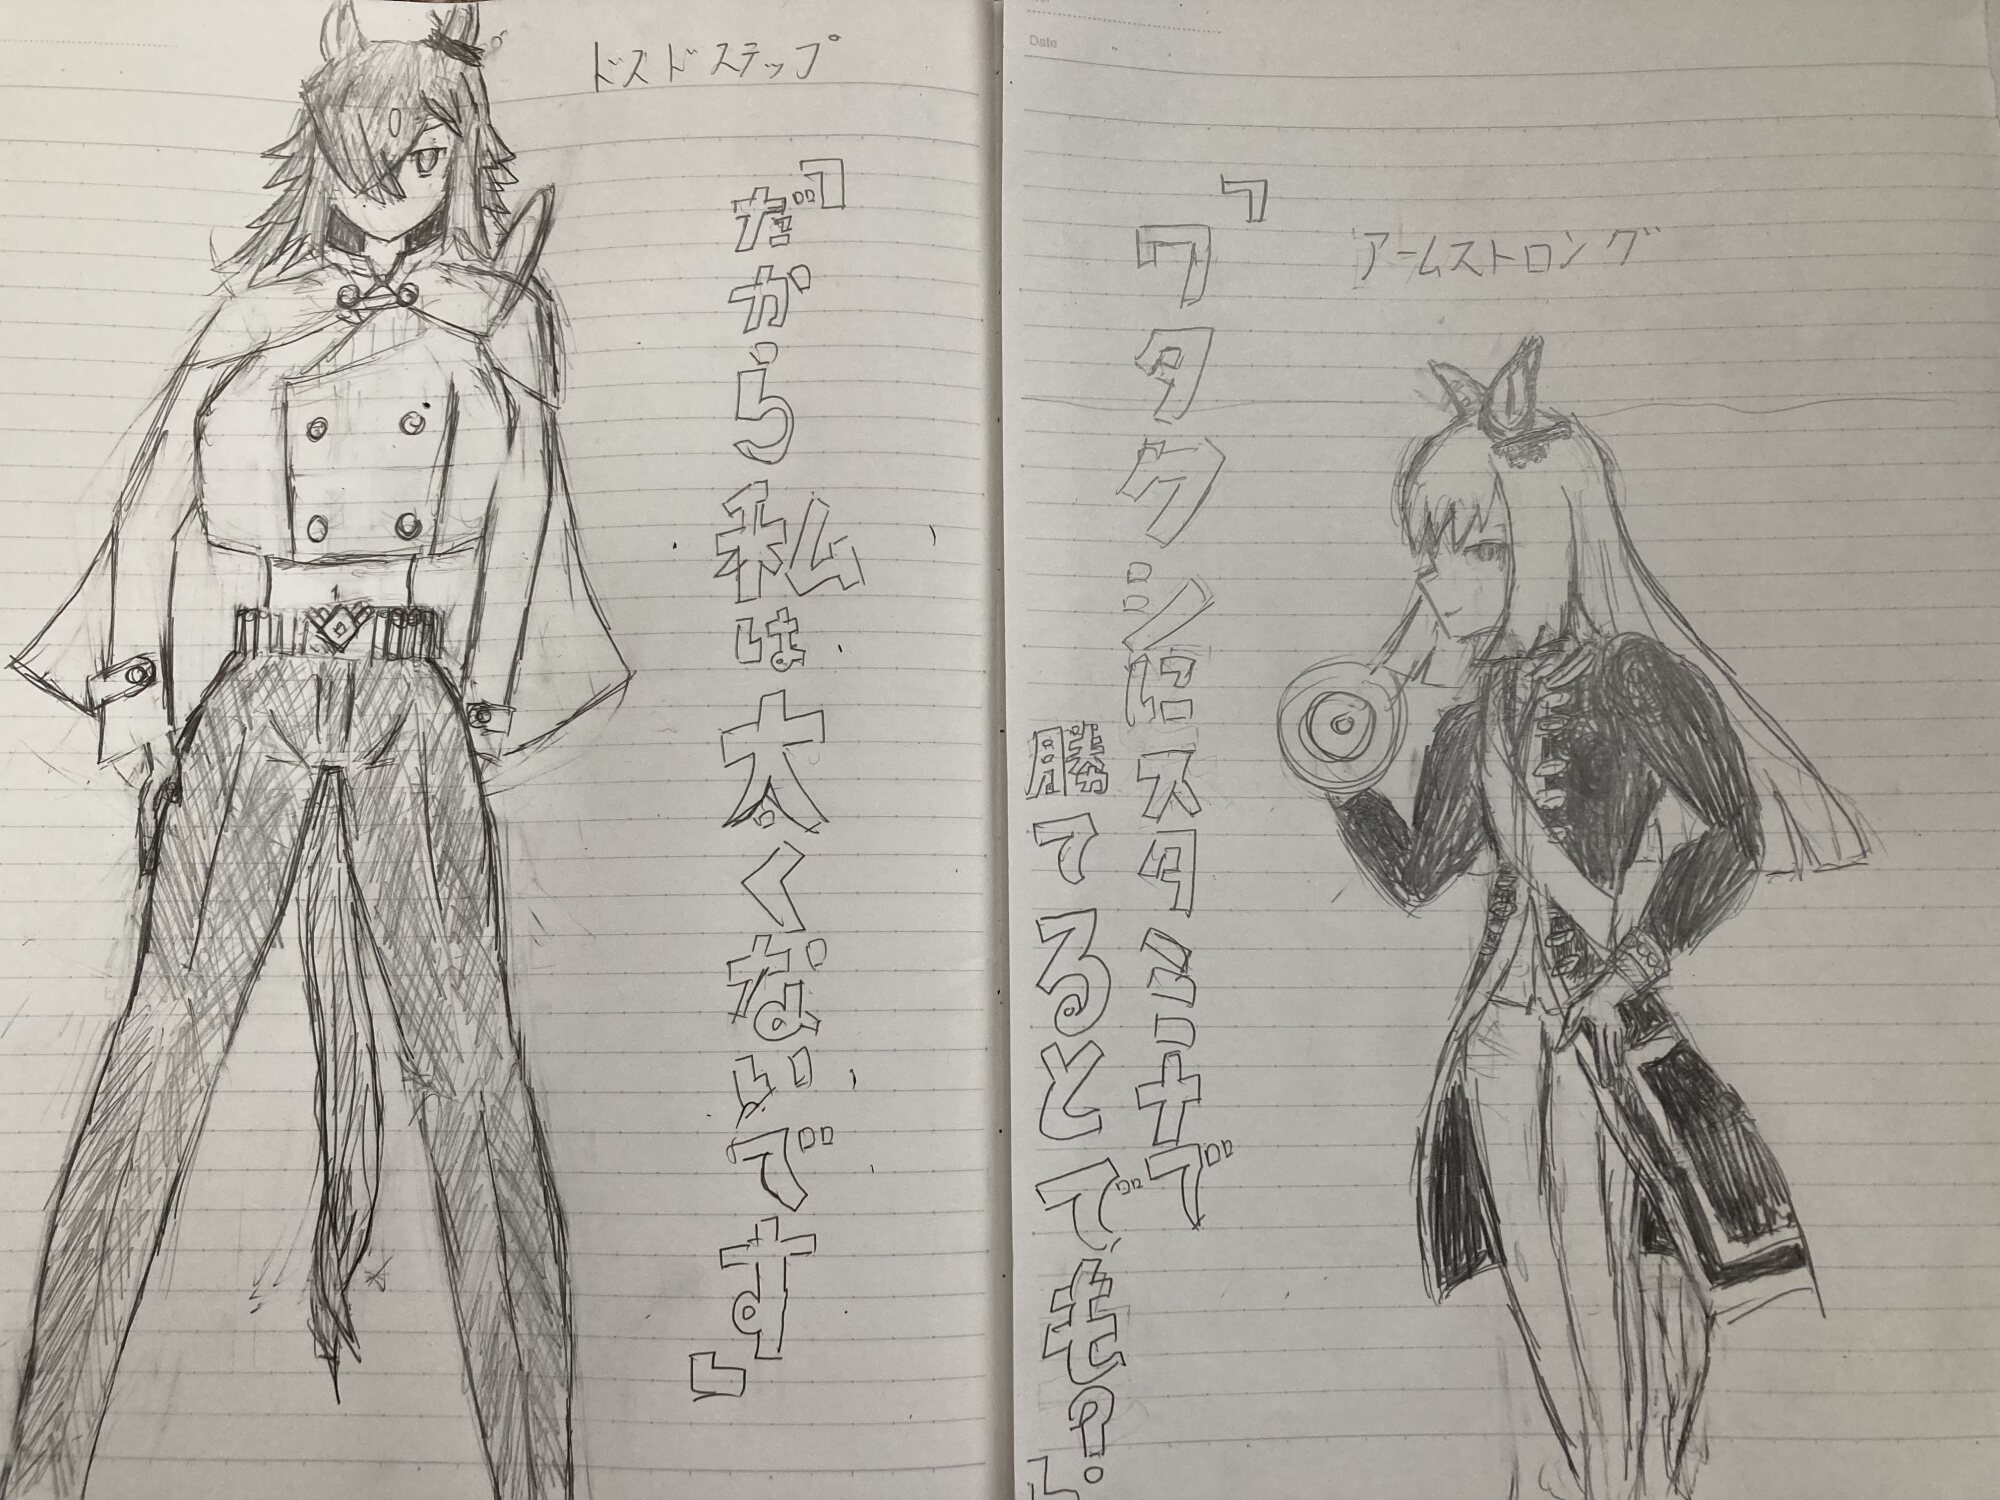 ドスドステップ
『だから私は太くないです』
Date
アームストロング
『ワタクシにスタミナで
勝てるとでも?』